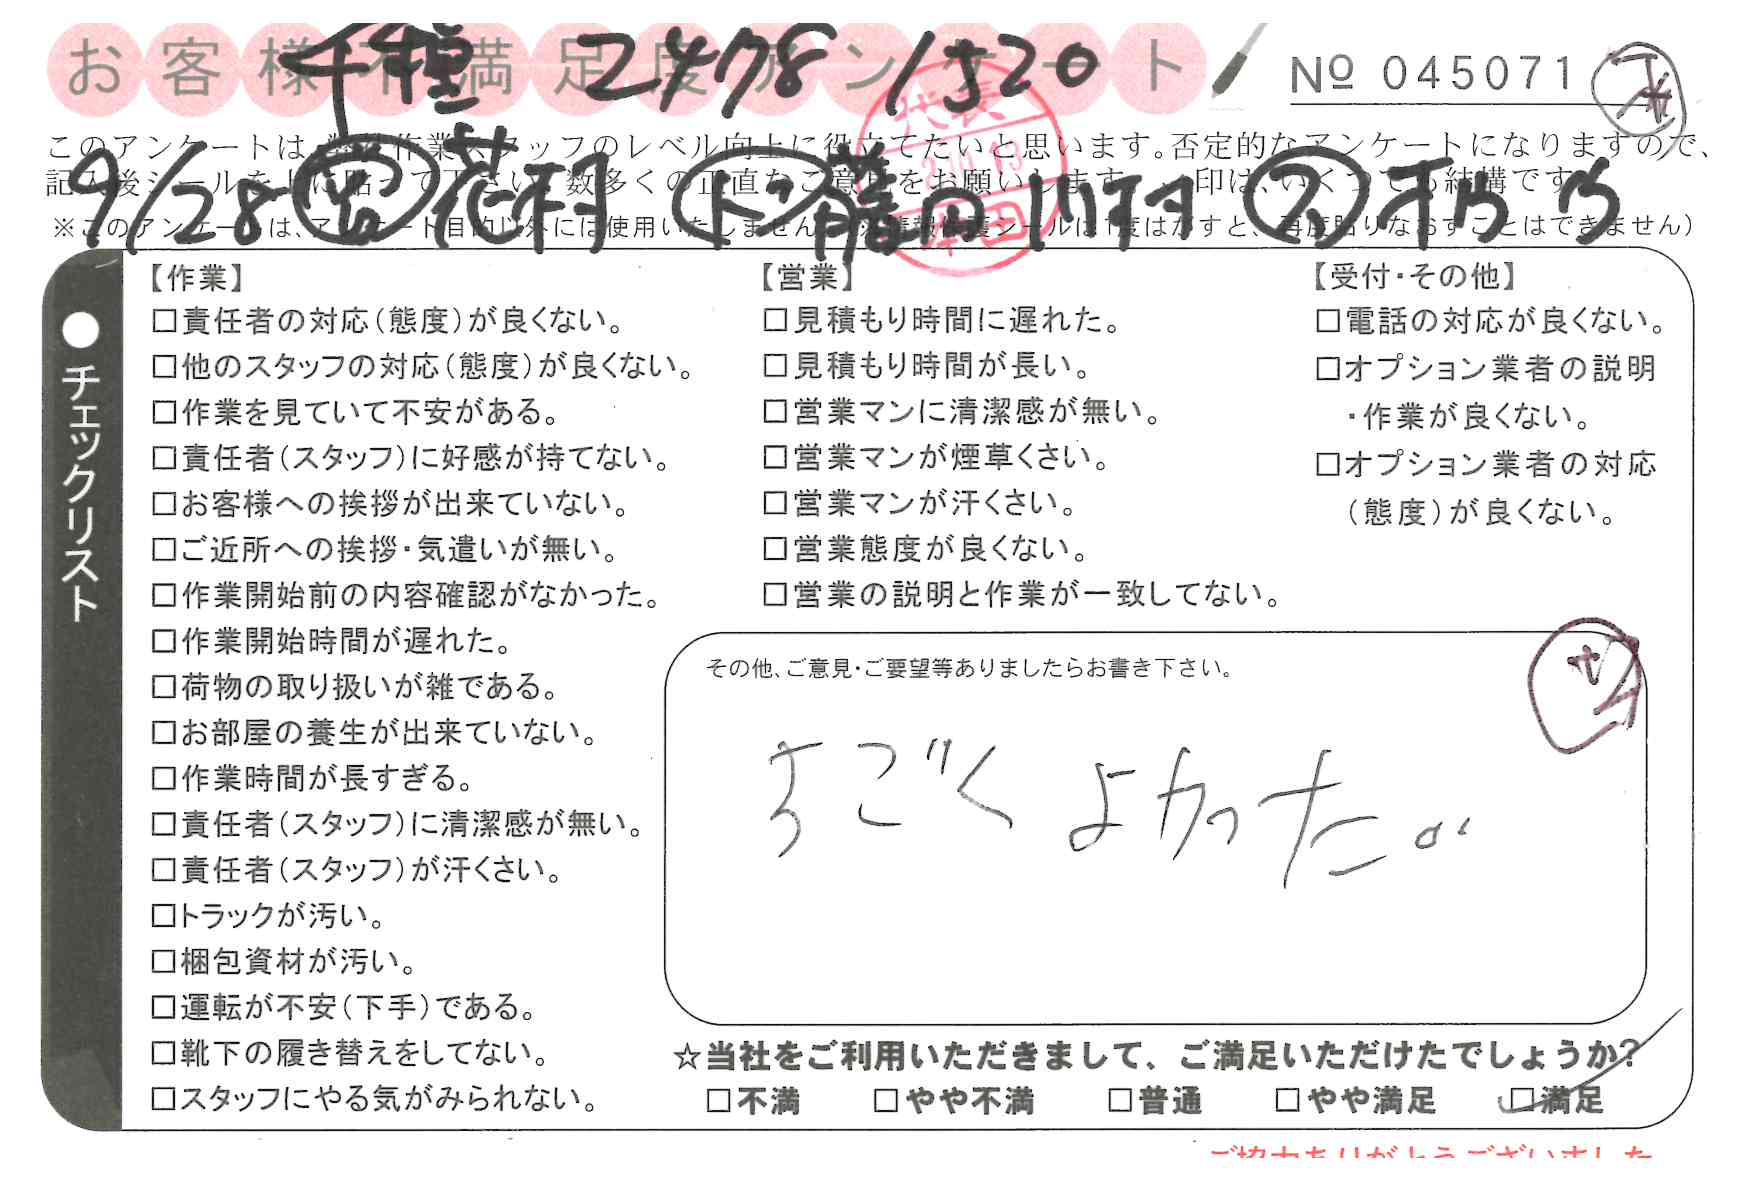 お客様不満足度アンケート
№ 045071
千種 2478 1520
このアンケートは、弊社作業スタッフのレベル向上に役立てたいと思います。否定的なアンケートになりますので、
記入後シールを上に貼って下さい。数多くの正直なご意見をお願いします。
9/28 花村 藤田 川村
※このアンケートは、アンケート目的以外には使用いたしません。(※情報保護シールは1度はがすと、再度貼りなおすことはできません)
代表
本田
●チェックリスト
【作業】
□責任者の対応(態度)が良くない。
□他のスタッフの対応(態度)が良くない。
□作業を見ていて不安がある。
□責任者(スタッフ)に好感が持てない。
□お客様への挨拶が出来ていない。
□ご近所への挨拶・気遣いが無い。
□作業開始前の内容確認がなかった。
□作業開始時間が遅れた。
□荷物の取り扱いが雑である。
□お部屋の養生が出来ていない。
□作業時間が長すぎる。
□責任者(スタッフ)に清潔感が無い。
□責任者(スタッフ)が汗くさい。
□トラックが汚い。
□梱包資材が汚い。
□運転が不安(下手)である。
□靴下の履き替えをしてない。
□スタッフにやる気がみられない。
【営業】
□見積もり時間に遅れた。
□見積もり時間が長い。
□営業マンに清潔感が無い。
□営業マンが煙草くさい。
□営業マンが汗くさい。
□営業態度が良くない。
□営業の説明と作業が一致してない。
【受付・その他】
□電話の対応が良くない。
□オプション業者の説明
・作業が良くない。
□オプション業者の対応
(態度)が良くない。
その他、ご意見・ご要望等ありましたらお書き下さい。
すごく よかった。
☆当社をご利用いただきまして、ご満足いただけたでしょうか?
□不満 □やや不満 □普通 □やや満足 □満足
ご協力ありがとうございました